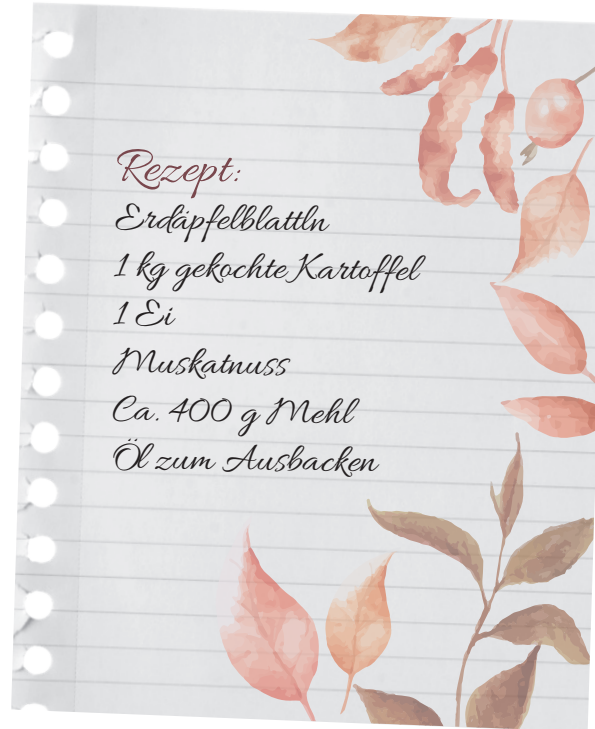 Rezept:
Erdäpfelblattln
1 kg gekochte Kartoffel
1 Ei
Muskatnuss
Ca. 400 g Mehl
Öl zum Ausbacken